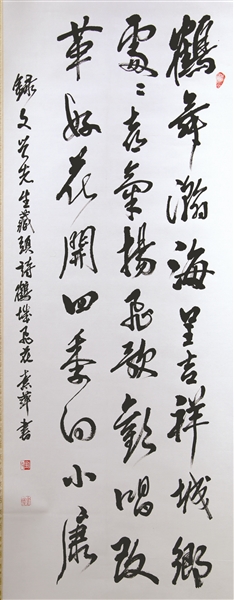 鶴舞瀚海呈吉祥城鄉
處〻喜氣揚飛歌歡唱改
革好花開四季向小康
録文先生藏頭詩鶴城飛花袁萍書